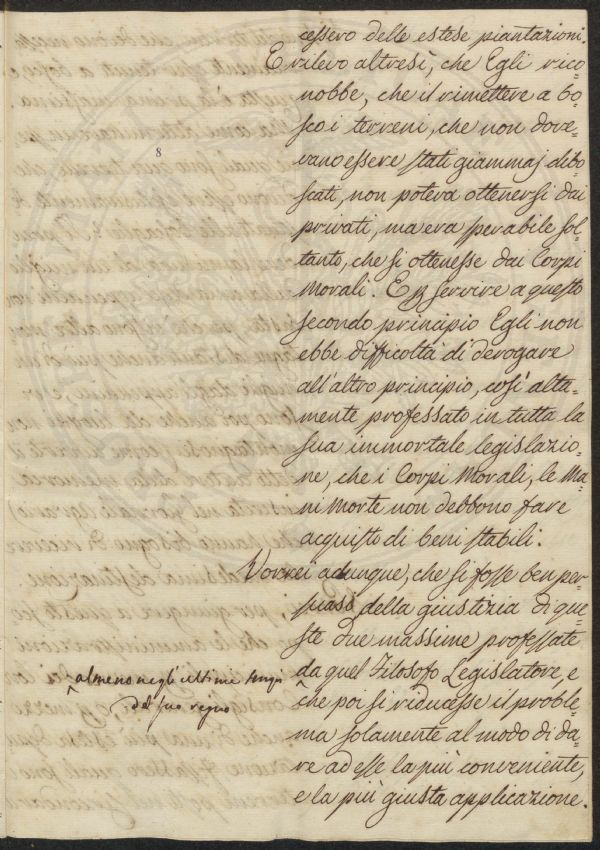 cessero delle estese piantazioni.
E rilevo altresì, che Egli rico=
nobbe, che il rimettere a bo=
sco i terreni, che non dove=
vano essere stati giammaj dibo=
scati, non poteva ottenersi dai
privati, ma era sperabile sol=
tanto, che si ottenesse dai Corpi
Morali. E per servire a questo
secondo principio Egli non
ebbe difficoltà di derogare
all'altro principio, così alta=
mente professato in tutta la
sua immortale legislazio=
ne, che i Corpi Morali, le Ma=
ni Morte non debbono fare
acquisto di beni stabili.
Vorrei adunque, che si fosse ben per=
suasi della giustizia di que=
ste due massime professate
da quel Filosofo Legislatore, e
che poi si riducesse il proble=
ma solamente al modo di da=
re ad esse la più conveniente,
e la più giusta applicazione.
8
almeno negli ultimi tempi
del suo regno